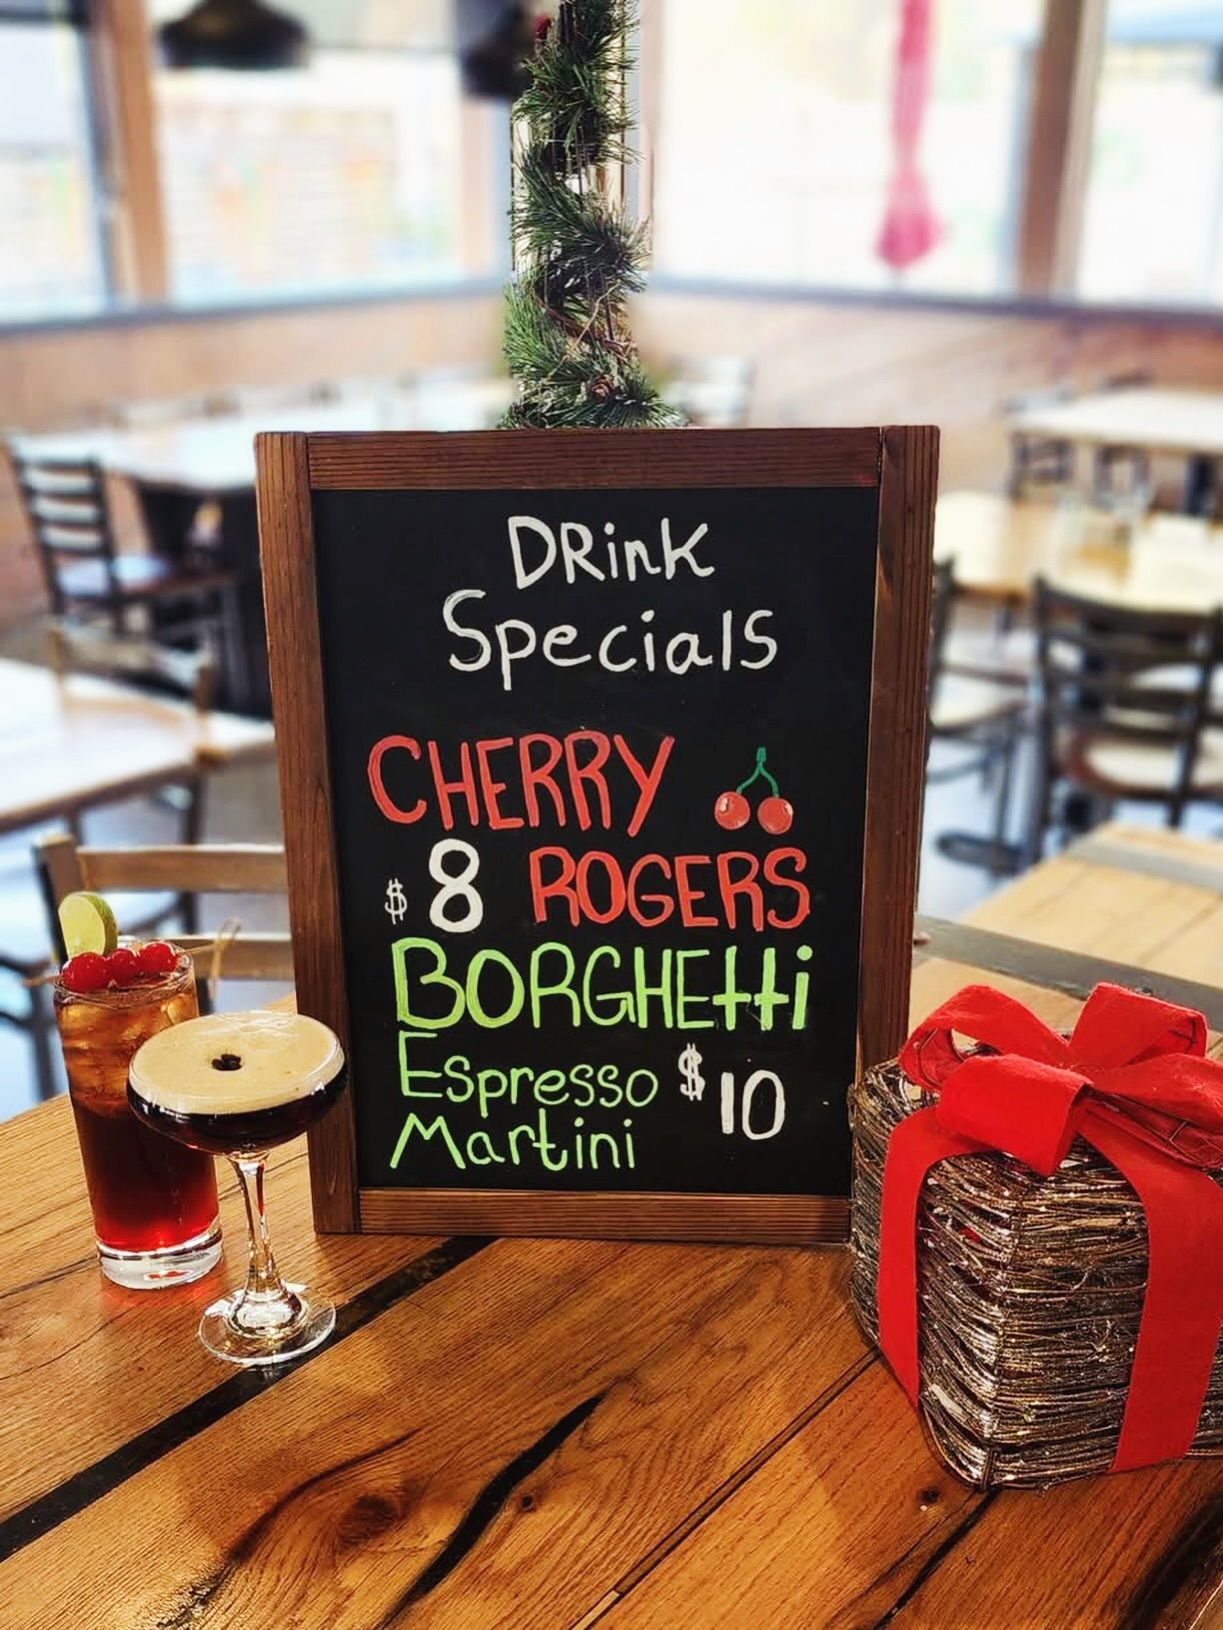 DRink
Specials
CHERRY
$8 ROGERS
BORGHEtti
Espresso $10
Martini